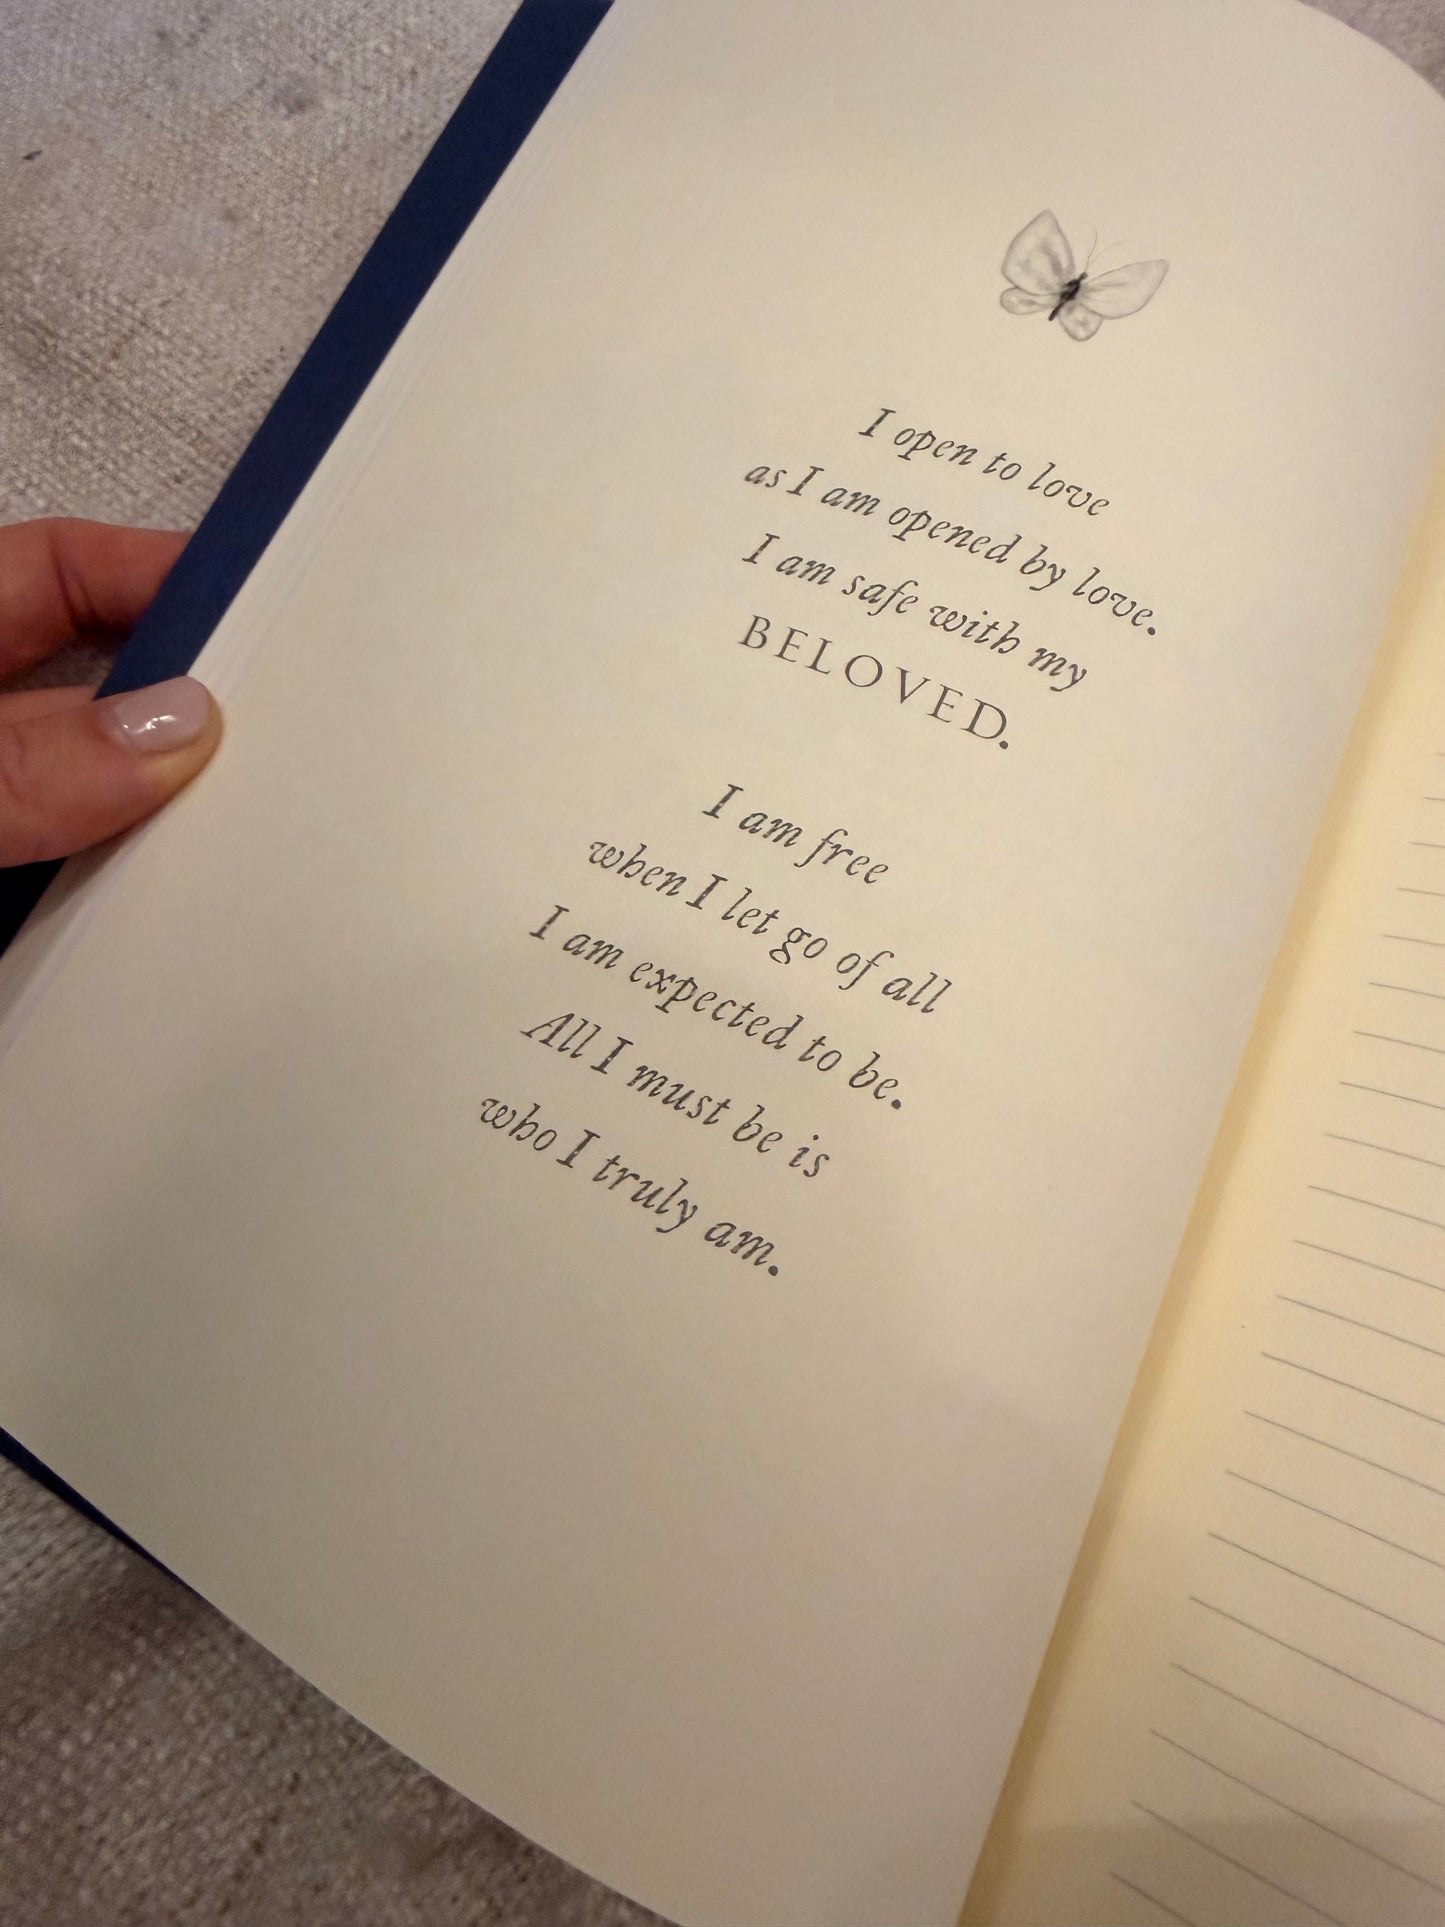 I open to love
as I am opened by love.
I am safe with my
BELOVED.
I am free
when I let go of all
I am expected to be.
All I must be is
who I truly am.